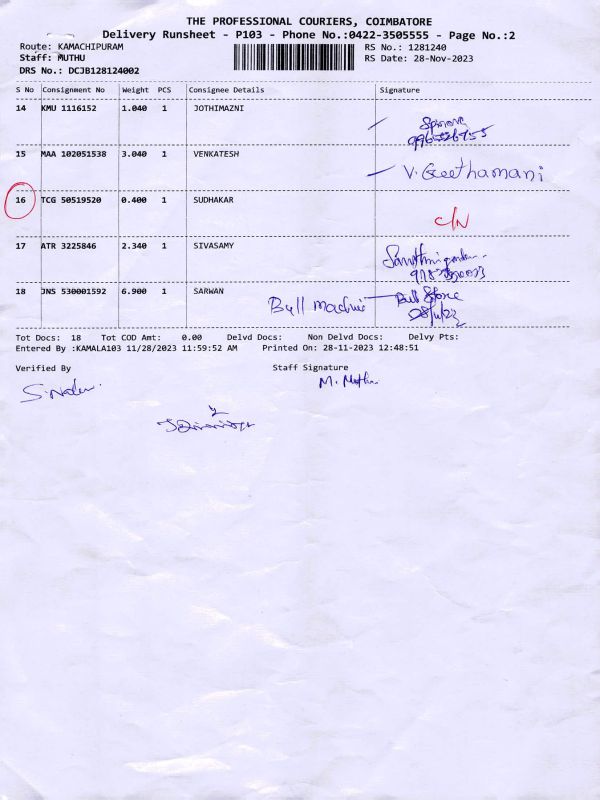 THE PROFESSIONAL COURIERS, COIMBATORE
Delivery Runsheet - P103 - Phone No.:0422-3505555 - Page No.:2
Route: KAMACHIPURAM RS No.: 1281240
Staff: MUTHU RS Date: 28-Nov-2023
DRS No.: DCJB128124002
S No Consignment No Weight PCS Consignee Details Signature
14 KMU 1116152 1.040 1 JOTHIMAZNI
15 MAA 102051538 3.040 1 VENKATESH V. Geethamani
16 TCG 50519520 0.400 1 SUDHAKAR C/N
17 ATR 3225846 2.340 1 SIVASAMY
18 JNS 530001592 6.900 1 SARWAN Bull machine Bull Store
Tot Docs: 18 Tot COD Amt: 0.00 Delvd Docs: Non Delvd Docs: Delvy Pts:
Entered By :KAMALA103 11/28/2023 11:59:52 AM Printed On: 28-11-2023 12:48:51
Verified By Staff Signature
M. Muthu